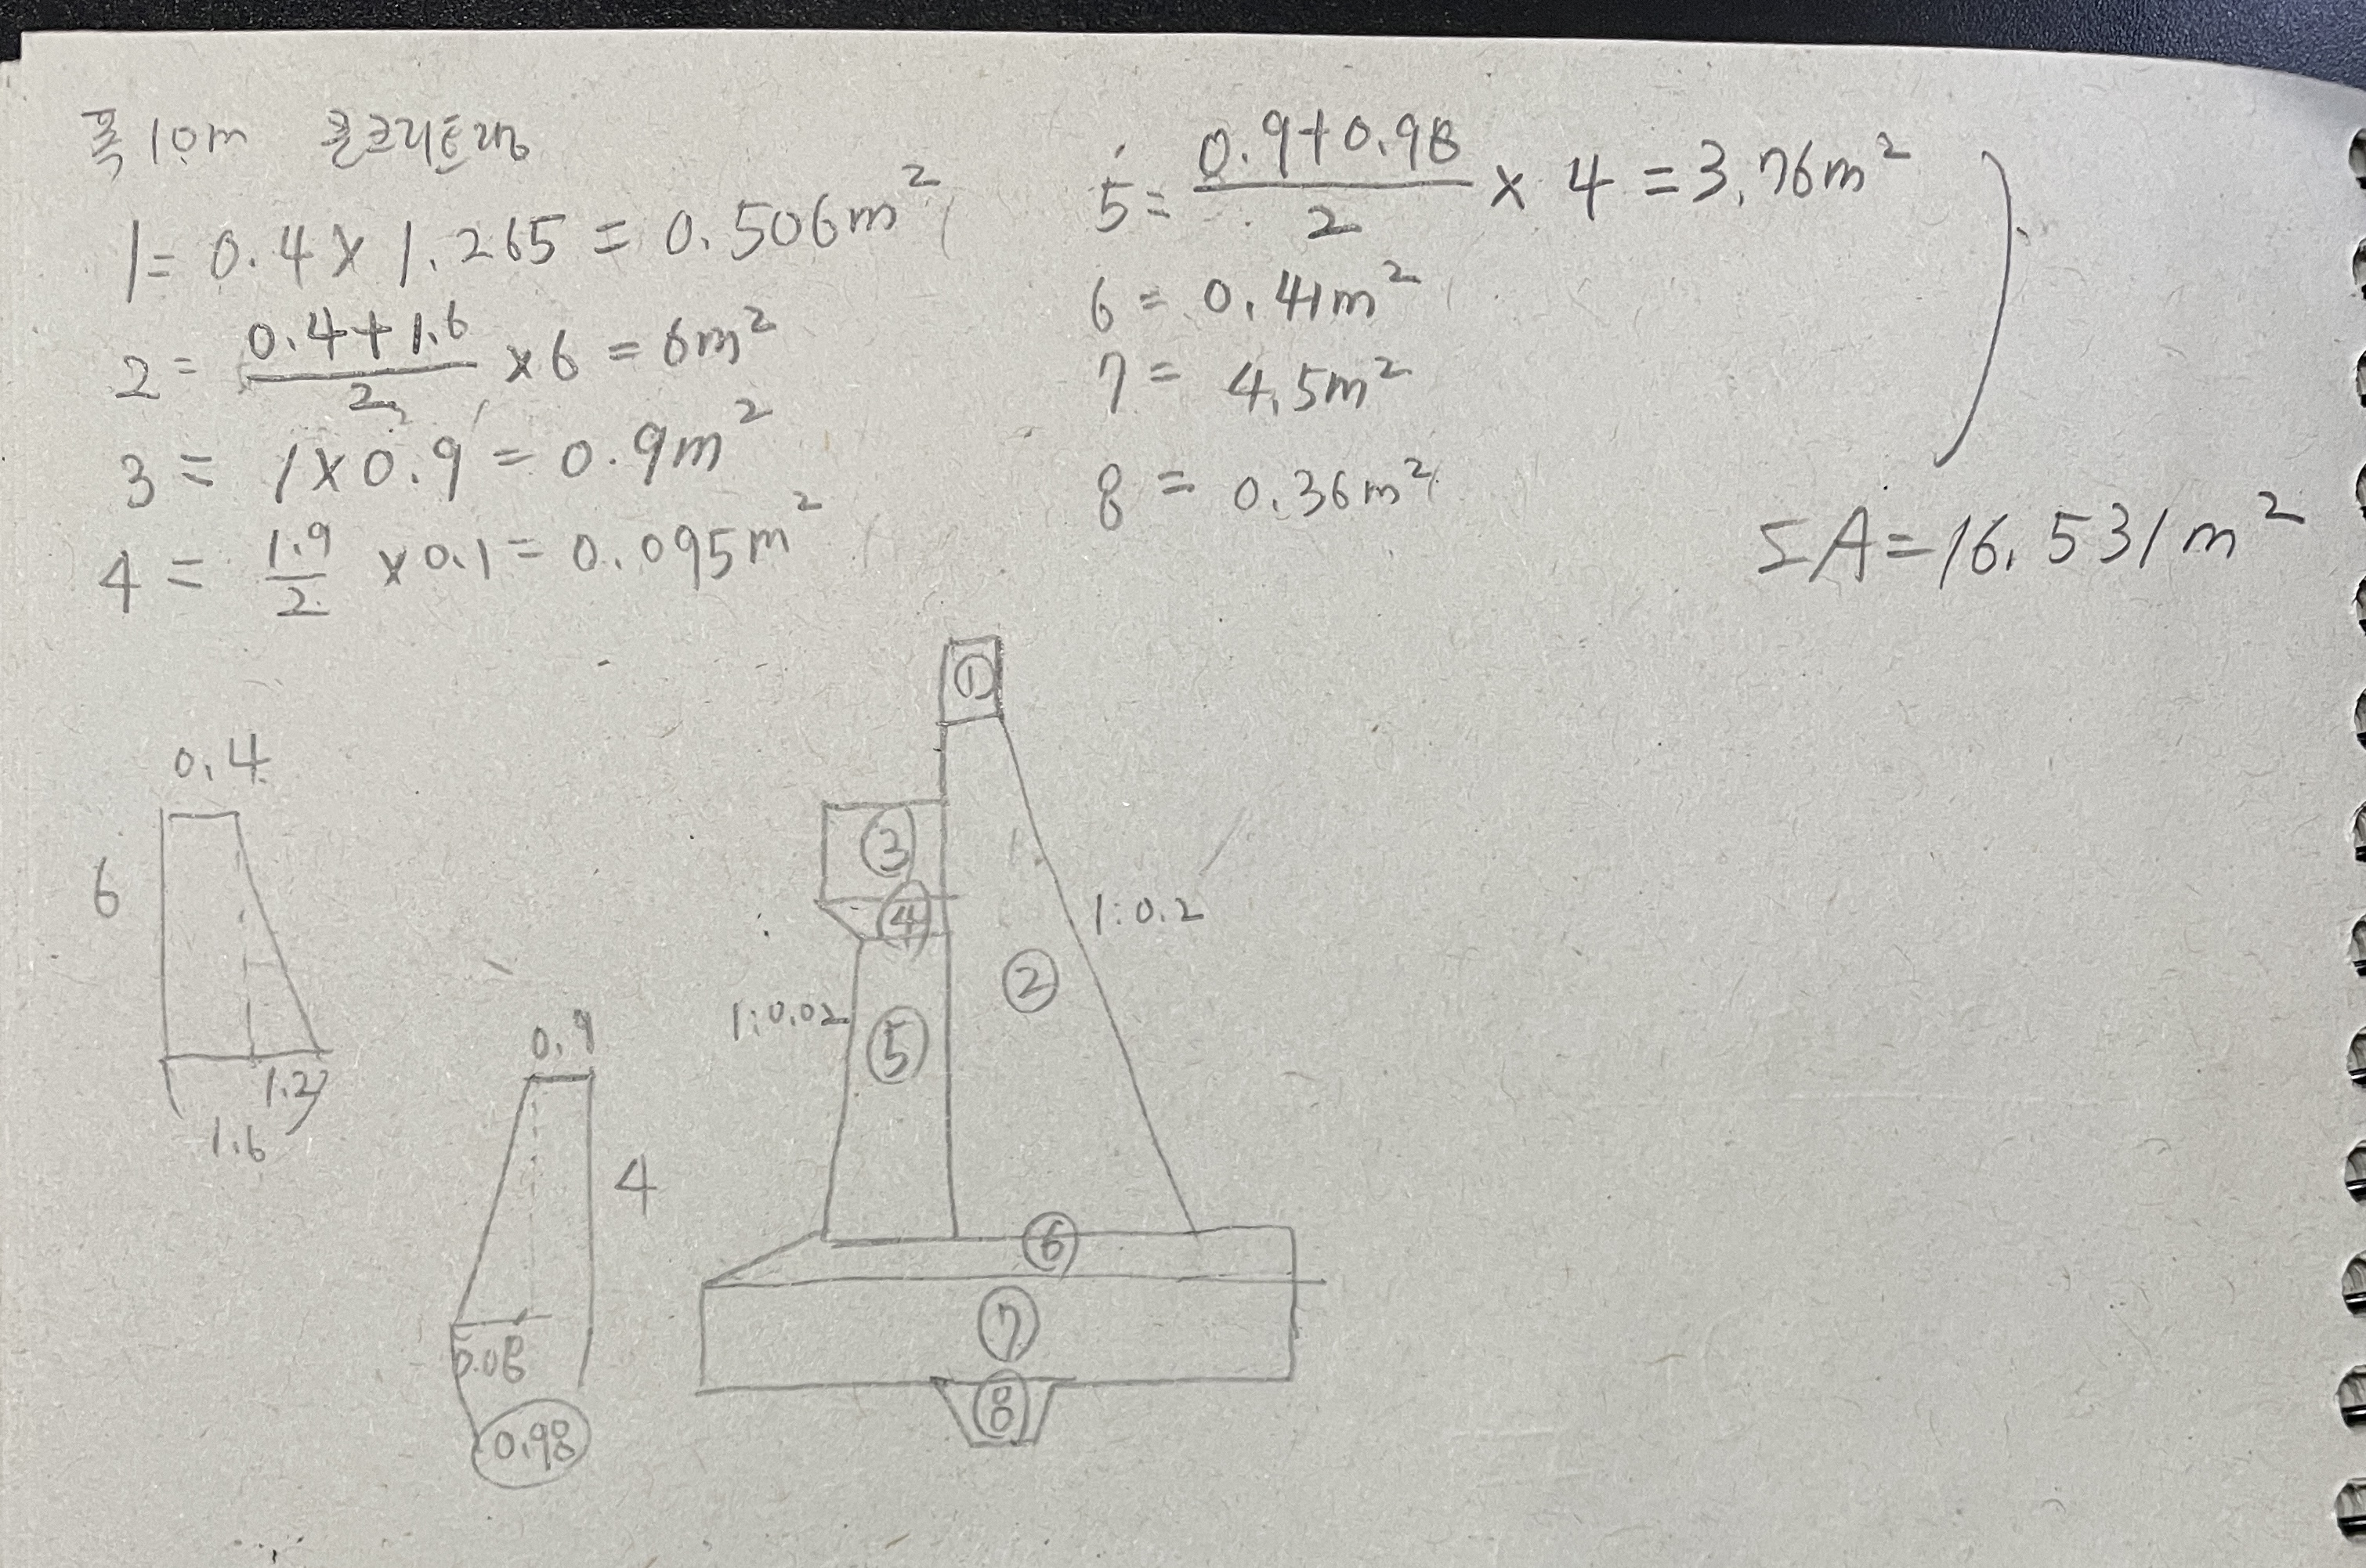 폭 10m 콘크리트량
1 = 0.4 × 1.265 = 0.506m²
2 = (0.4+1.6)/2 × 6 = 6m²
3 = 1 × 0.9 = 0.9m²
4 = 1.9/2 × 0.1 = 0.095m²
5 = (0.9+0.98)/2 × 4 = 3.76m²
6 = 0.41m²
7 = 4.5m²
8 = 0.36m²
ΣA = 16.531m²
0.4
6
1.2
1.6
0.9
4
0.08
0.98
①
③
④
1:0.2
②
1:0.02
⑤
⑥
⑦
⑧